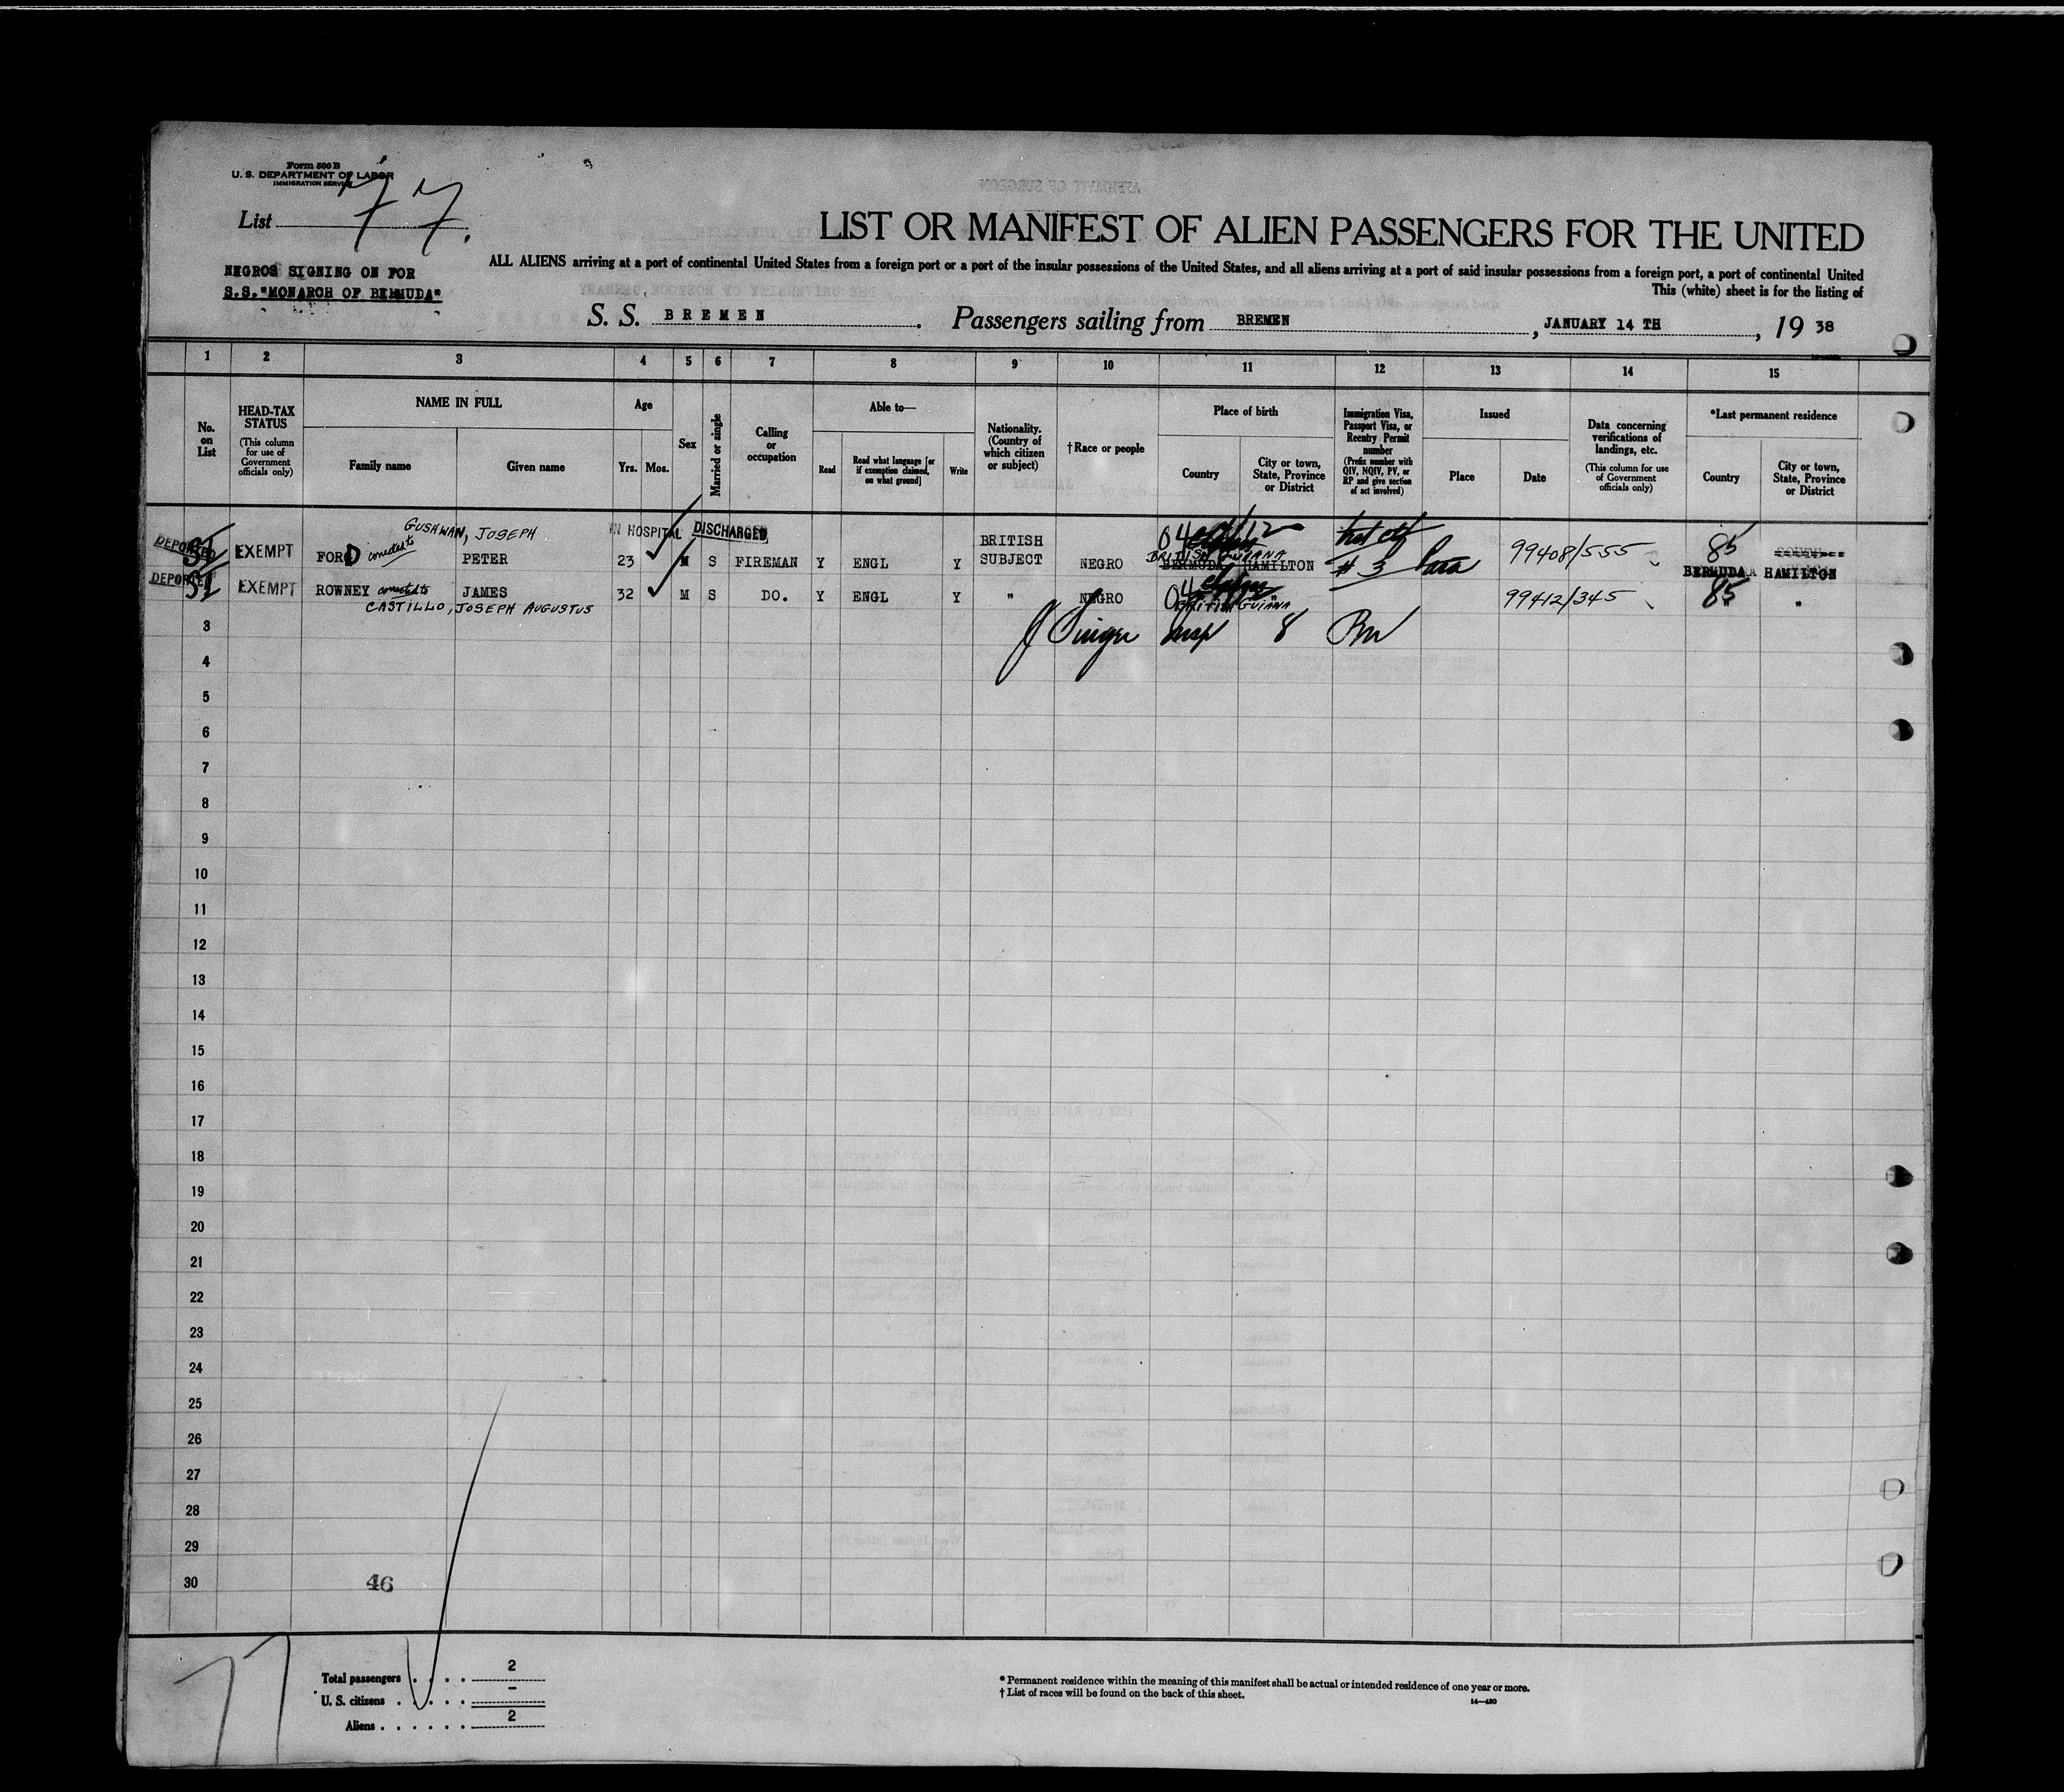 Form 500 B
U. S. DEPARTMENT OF LABOR
IMMIGRATION SERVICE
List 77.
LIST OR MANIFEST OF ALIEN PASSENGERS FOR THE UNITED
NEGROS SIGNING ON FOR
S.S."MONARCH OF BERMUDA"
ALL ALIENS arriving at a port of continental United States from a foreign port or a port of the insular possessions of the United States, and all aliens arriving at a port of said insular possessions from a foreign port, a port of continental United
This (white) sheet is for the listing of
S. S. BREMEN. Passengers sailing from BREMEN, JANUARY 14 TH, 19 38
1 2 3 4 5 6 7 8 9 10 11 12 13 14 15
No. on List
HEAD-TAX STATUS
(This column for use of Government officials only)
NAME IN FULL
Family name
Given name
Age
Yrs. Mos.
Sex
Married or single
Calling or occupation
Able to—
Read
Read what language [or if exemption claimed, on what ground]
Write
Nationality. (Country of which citizen or subject)
†Race or people
Place of birth
Country
City or town, State, Province or District
Immigration Visa, Passport Visa, or Reentry Permit number
(Prefix number with QIV, NQIV, PV, or RP and give section of act involved)
Issued
Place
Date
Data concerning verifications of landings, etc.
(This column for use of Government officials only)
*Last permanent residence
Country
City or town, State, Province or District
GUSHWAN, JOSEPH IN HOSPITAL DISCHARGED
DEPORTED EXEMPT FORD corrected to PETER 23 M S FIREMAN Y ENGL Y BRITISH SUBJECT NEGRO 04 BRITISH GUIANA BERMUDA HAMILTON #3 99408/555 85 BERMUDA HAMILTON
DEPORTED EXEMPT ROWNEY corrected to JAMES 32 M S DO. Y ENGL Y " NEGRO 04 BRITISH GUIANA 99412/345 85 "
CASTILLO, JOSEPH AUGUSTUS
J Singer Insp 8
3
4
5
6
7
8
9
10
11
12
13
14
15
16
17
18
19
20
21
22
23
24
25
26
27
28
29
30
46
77
Total passengers . . . . 2
U. S. citizens . . . . . –
Aliens . . . . . . 2
* Permanent residence within the meaning of this manifest shall be actual or intended residence of one year or more.
† List of races will be found on the back of this sheet.
14—430